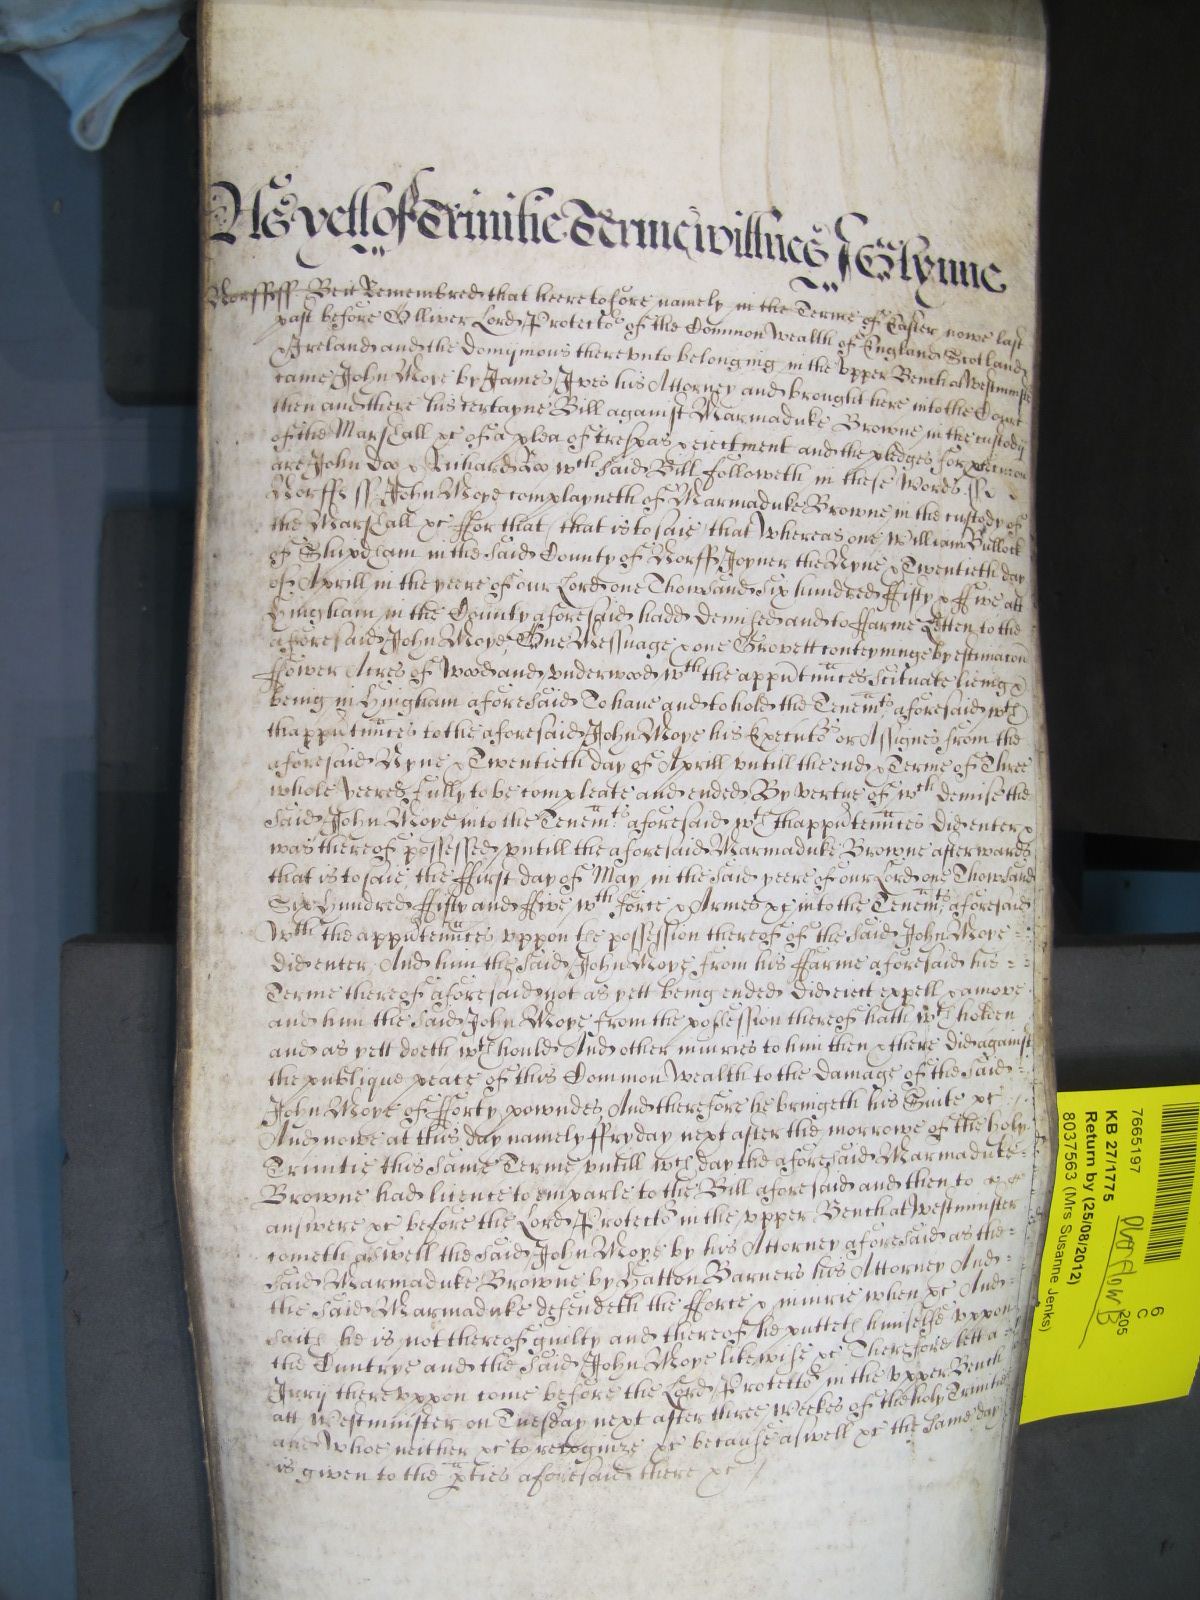 As yett of Trinitie Terme wittnes J Glynne
Norff ss Beit Remembred that heeretofore namely in the Terme of Easter nowe last
past before Olliver Lord Protector of the Common Wealth of England Scotland
Ireland and the domynions therevnto belonging in the vpper Bench at Westminster
came John Moye by James Ives his Attorney and brought here into the Court
then and there his certayne Bill against Marmaduke Browne in the custody
of the Marshall &c of a plea of trespas & eiectment and the pledges for
are John Doo & Richard Roo wch said Bill followeth in these words ss
Norff ss John Moye complayneth of Marmaduke Browne in the custody of
the Marshall &c ffor that that is to saie that Whereas one William Bullock
of Shipdham in the said County of Norff Joyner the Nyne & Twentieth day
of Aprill in the yeere of our Lord one Thowsand Six hundred ffifty & ffive att
Hingham in the County aforesaid hadd demised and to ffarme Letten to the
aforesaid John Moye One Messuage & one Grovett conteyninge by estimacon
ffower Acres of Wood and vnderwood wth the appurtennces Scituate lieing &
being in Hingham aforesaid To haue and to hold the Tenemts aforesaid wth
thappurtennces to the aforesaid John Moye his Executors or Assignes from the
aforesaid Nyne & Twentieth day of Aprill vntill the end & Terme of Three
whole yeeres fully to be compleate and ended By vertue of wch demise the
said John Moye into the Tenemts aforesaid wth thappurtennces did enter &
was thereof possessed vntill the aforesaid Marmaduke Browne afterwards
that is to saie the ffirst day of May in the said yeere of our Lord one Thowsand
Six Hundred ffifty and ffive wth force & Armes &c into the Tenemts aforesaid
Wth the appurtennces vppon the possession thereof of the said John Moye
did enter And him the said John Moye from his ffarme aforesaid his
Terme thereof aforesaid not as yett being ended did eiect expell & amove
and him the said John Moye from the possession thereof hath wth holden
and as yett doeth wth hould And other iniuries to him then & there did against
the publique peace of this Common Wealth to the damage of the said
John Moye of fforty powndes And therefore he bringeth his Suite &c
And nowe at this day namely ffryday next after the morrowe of the holy
Trinitie this same Terme vntill wch day the aforesaid Marmaduke
Browne had licence to emparle to the Bill aforesaid and then to
answere &c before the Lord Protector in the vpper Bench at Westminster
cometh aswell the said John Moye by his Attorney aforesaid as the
said Marmaduke Browne by Hatton Barners his Attorney And
the said Marmaduke defendeth the fforce & iniurie when &c And
saith he is not thereof guilty and thereof he putteth himselfe vppon
the Cuntrye and the said John Moye likewise &c Therefore lett a
Jury therevppon come before the Lord Protector in the vpper Bench
att Westminster on Tuesday next after three Weekes of the holy Trinitie
and Whoe neither &c to recognize &c because aswell &c the same day
is given to the pties aforesaid there &c
7665197
KB 27/1775
Return by (25/08/2012)
8037563 (Mrs Susanne Jenks)
6
C
205
Overflow B